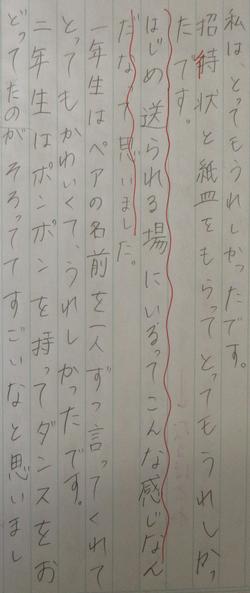 私は、とってもうれしかったです。
招待状と紙皿をもらってとってもうれしかっ
たです。
はじめ送られる場にいるってこんな感じなん
だなって思いました。
一年生はペアの名前を一人ずつ言ってくれて
とってもかわいくて、うれしかったです。
二年生はポンポンを持ってダンスをお
どってたのがそろっててすごいなと思いまし